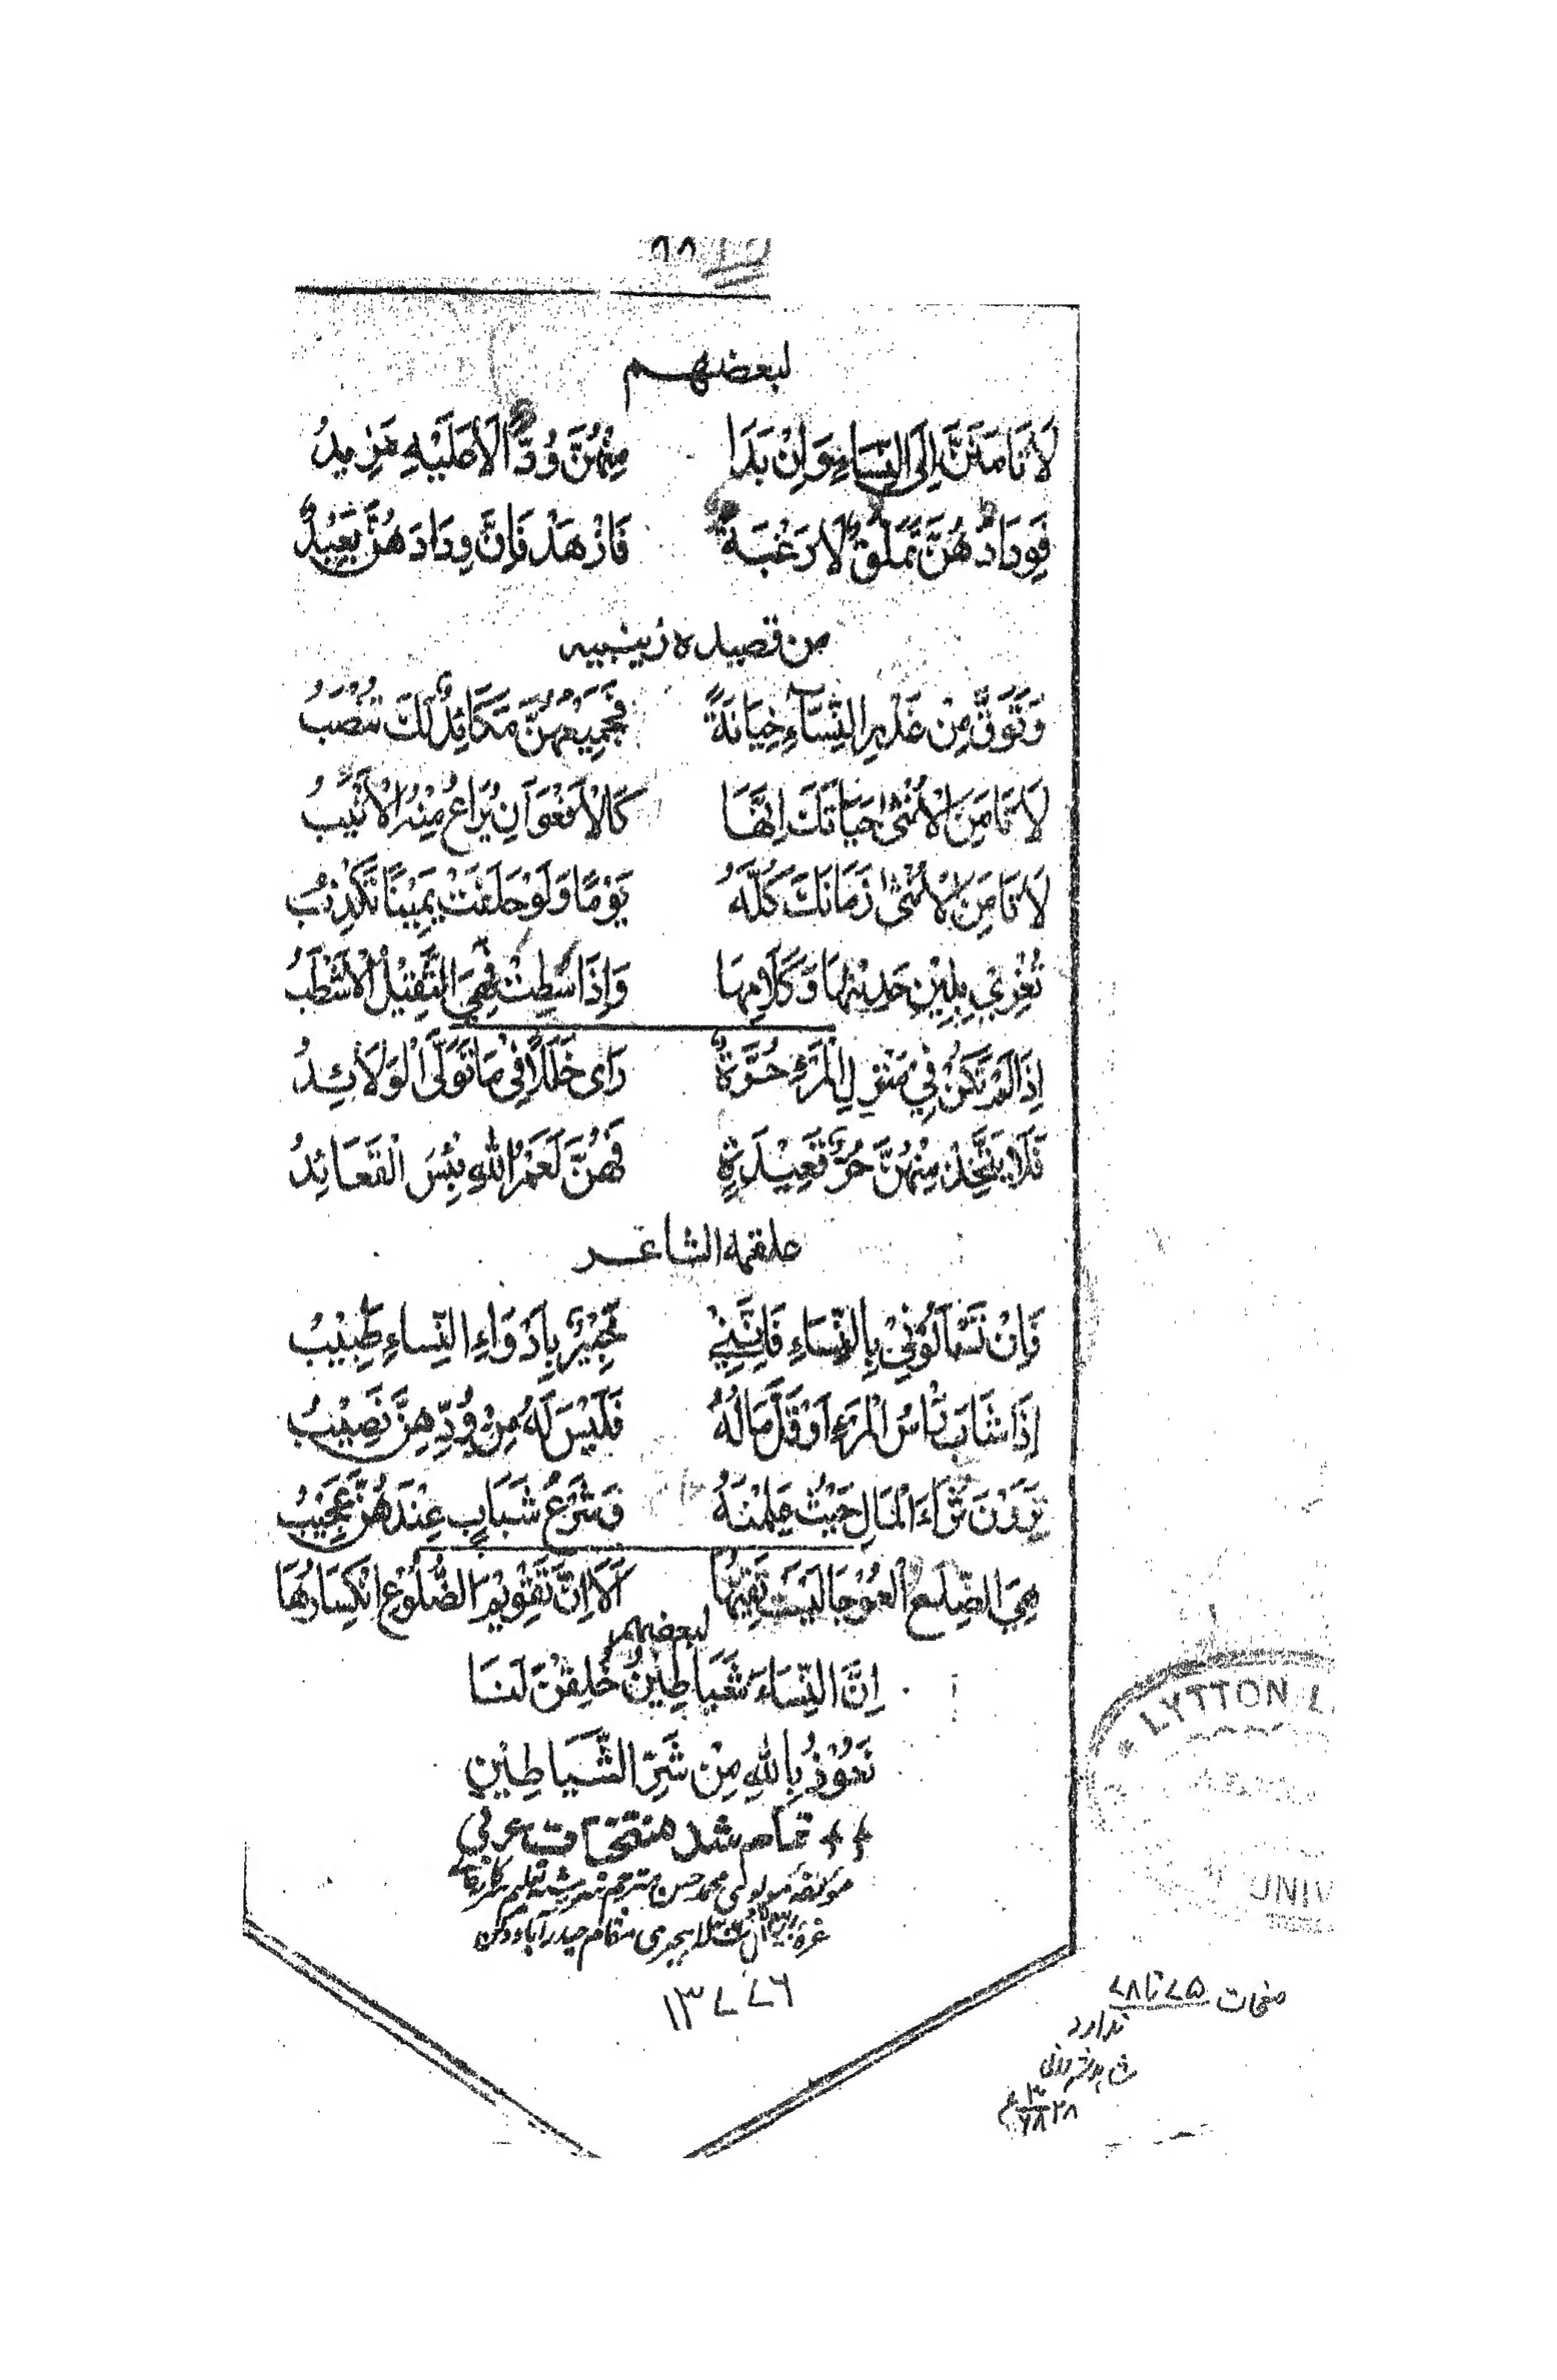 ٩٨
لبعضهم
لَا تَامَنَنَّ اِلَى النِّسَاءِ وَاِنْ بَدَا مِنْهُنَّ وُدٌّ الاعَلَيْهِ مَزِيدُ
فَوِدَادُهُنَّ تَمَلُّقٌ لَا رَغْبَةٌ فَازْهَدْ فَاِنَّ وِدَادَهُنَّ بَعِيْدٌ
من قصيده زينبيه
وَتَوَقَّ مِنْ غَدْرِ النِّسَآءِ خِيَانَةً فَجَمِيْعُهُنَّ مَكَائِدٌ لَكَ تُنْصَبُ
لَا تَامَنِ الْاُنْثٰى حَيَاتَكَ اِنَّهَا كَالْاَفْعَوَانِ يُرَاعُ مِنْهُ الْاَنْيَبُ
لَا تَامَنِ الْاُنْثٰى زَمَانَكَ كُلَّهُ يَوْمًا وَلَوْ حَلَفَتْ يَمِيْنًا تَكْذِبُ
تُغْرِيْ بِلِيْنِ حَدِيْثِهَا وَكَلَامِهَا وَاِذَا سَطَتْ فَهِيَ الثَّقِيْلُ الْاَشْطَبُ
اِذَا لَمْ تَكُنْ فِيْ مَنْزِلِ الْمَرْءِ حُرَّةٌ رَاٰى خَلَلًا فِيْ مَا تَوَلَّى الْوَلَائِدُ
فَلَا يَتَّخِذْ مِنْهُنَّ حُرٌّ قَعِيْدَةٍ فَهُنَّ لَعَمْرُ اللهِ بِئْسَ الْقَعَائِدُ
علقمه الشاعر
فَاِنْ تَسْاَلُوْنِيْ بِالنِّسَاءِ فَاِنَّنِيْ خَبِيْرٌ بِاَدْوَاءِ النِّسَاءِ طَبِيْبُ
اِذَا شَابَ رَاْسُ الْمَرْءِ اَوْ قَلَّ مَالُهُ فَلَيْسَ لَهُ مِنْ وُدِّهِنَّ نَصِيْبُ
يُرِدْنَ ثَرَاءَ الْمَالِ حَيْثُ عَلِمْنَهُ وَشَرْعُ شَبَابٍ عِنْدَهُنَّ عَجِيْبُ
هِيَ الضِّلَعُ الْعَوْجَا لَيْسَتْ تُقِيْمُهَا اَلَا اِنَّ تَقْوِيْمَ الضُّلُوْعِ انْكِسَارُهَا
لبعضهم
اِنَّ النِّسَاءَ شَيَاطِيْنٌ خُلِقْنَ لَنَا
نَعُوْذُ بِاللهِ مِنْ شَرِّ الشَّيَاطِيْنِ
تمام شد منتخبات عربي
مؤلفه مولوي محمد حسن مترجم
غره هجري مقام حيدرآباد دكن
١٣٧٧٦
LYTTON L
UNIV
صفحات ٧٥ تا ٧٨
ندارد